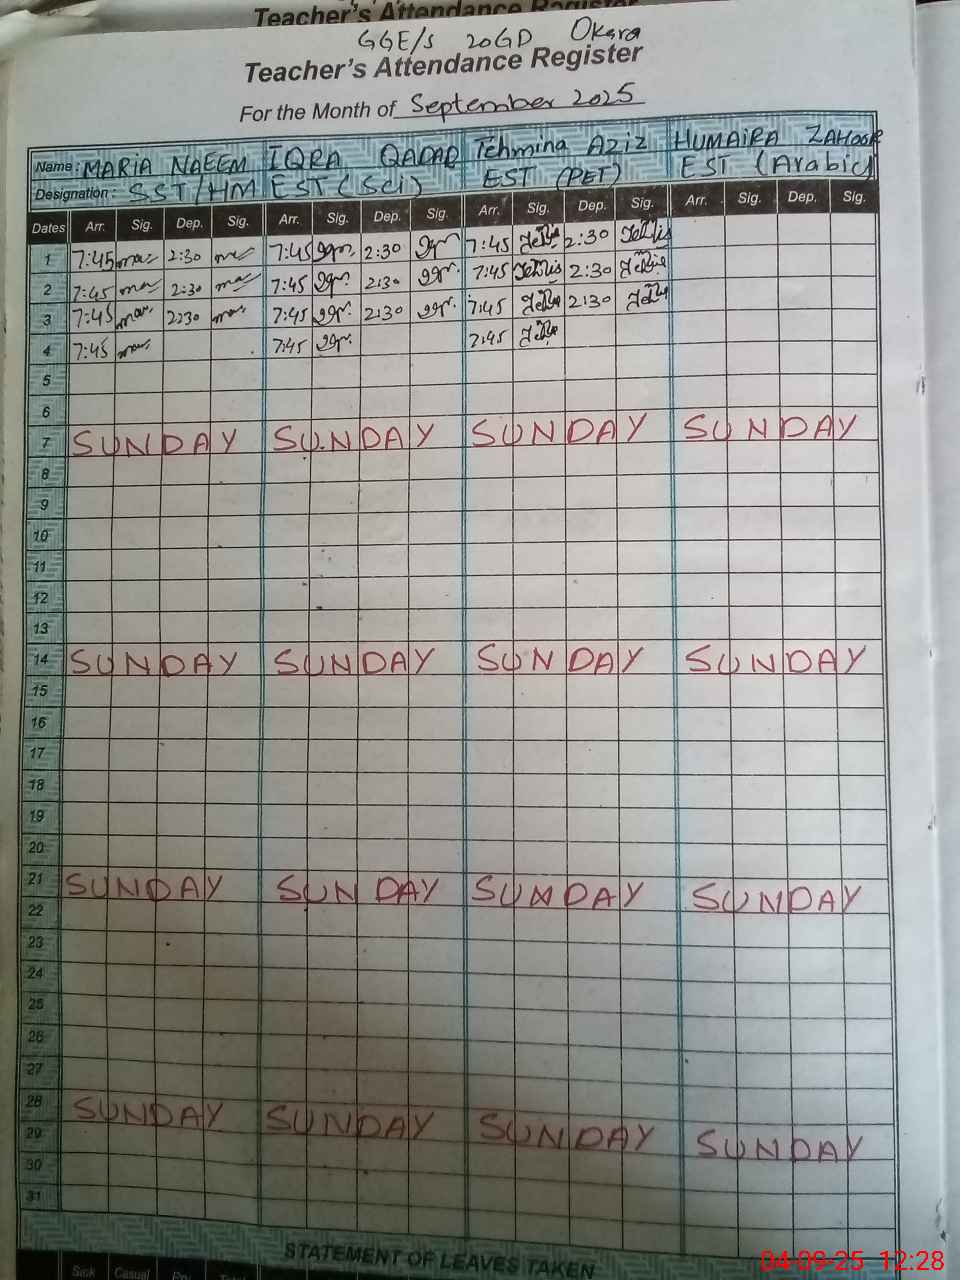 Teacher's Attendance Register
GGE/S 20GD Okara
Teacher's Attendance Register
For the Month of September 2025
Name: MARIA NAEEM IQRA QADAR Tehmina Aziz HUMAIRA ZAHOOR
Designation: SST/HM EST (Sci) EST (PET) EST (Arabic)
Dates Arr. Sig. Dep. Sig. Arr. Sig. Dep. Sig. Arr. Sig. Dep. Sig. Arr. Sig. Dep. Sig.
1 7:45 2:30 7:45 2:30 7:45 2:30
2 7:45 2:30 7:45 2:30 7:45 2:30
3 7:45 2:30 7:45 2:30 7:45 2:30
4 7:45 7:45 7:45
5
6
7 SUNDAY SUNDAY SUNDAY SUNDAY
8
9
10
11
12
13
14 SUNDAY SUNDAY SUNDAY SUNDAY
15
16
17
18
19
20
21 SUNDAY SUNDAY SUNDAY SUNDAY
22
23
24
25
26
27
28 SUNDAY SUNDAY SUNDAY SUNDAY
29
30
31
STATEMENT OF LEAVES TAKEN
Sick Casual
04-09-25 12:28